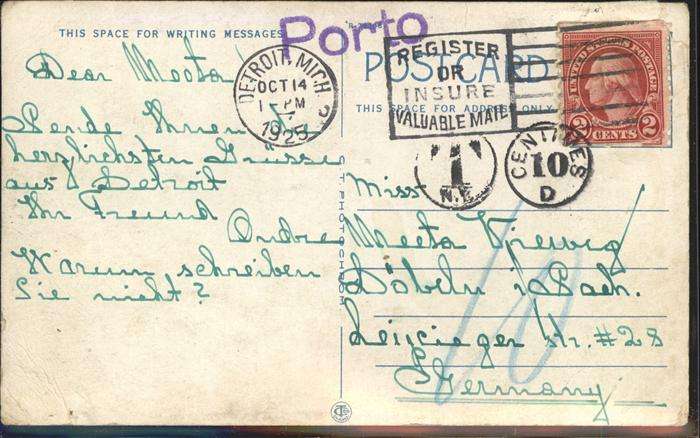 THIS SPACE FOR WRITING MESSAGES
Porto
Dear Meeta!
DETROIT, MICH.
OCT 14
PM
REGISTER
OR
INSURE
VALUABLE MAIL
POSTCARD
THIS SPACE FOR ADDRESS ONLY
UNITED STATES POSTAGE
2 CENTS 2
Sende Ihnen die
herzlichsten Grüsse
aus Detroit
Ihr Freund
Andre
Warum schreiben
Sie nicht?
T
N.Y.
CENTIMES
10
D
Miss
Meeta
Döbeln i. Sach.
Leipziger Str. #28
Germany
10